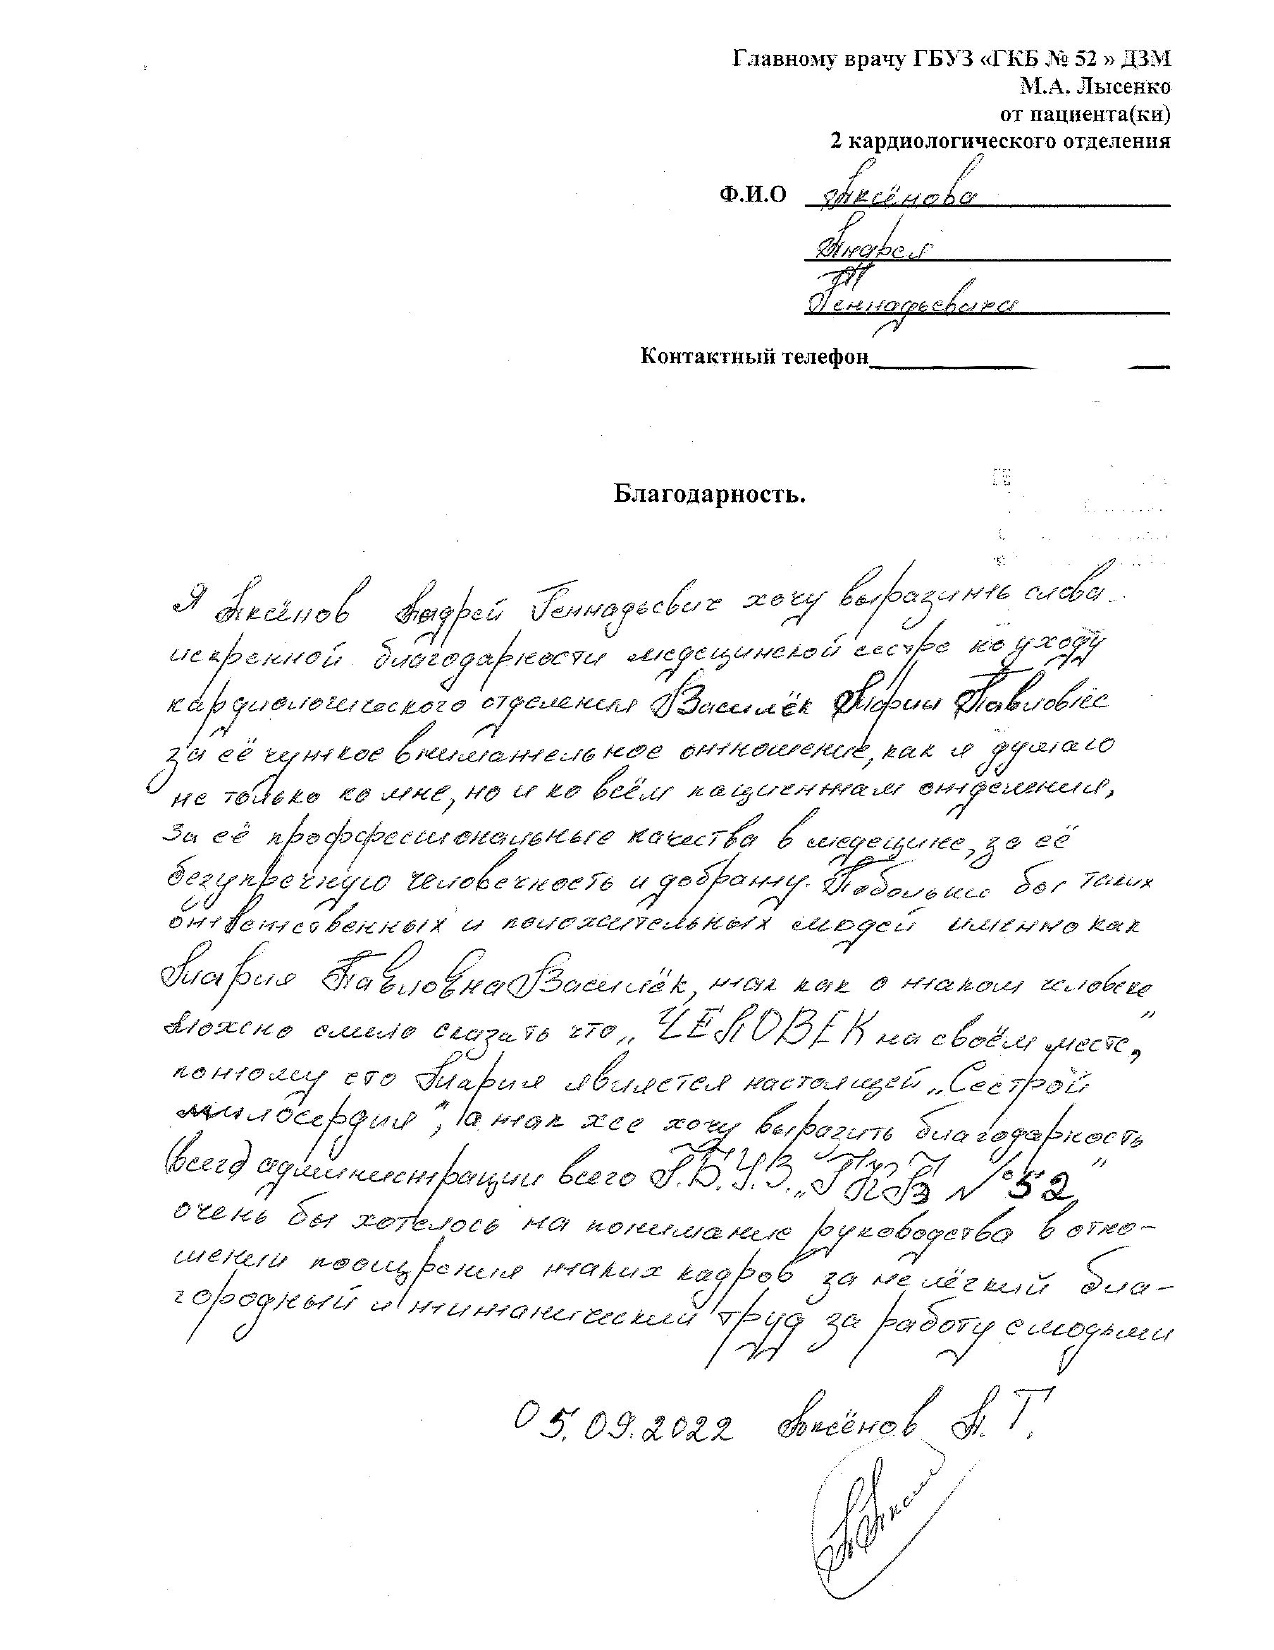 Главному врачу ГБУЗ «ГКБ № 52 » ДЗМ
М.А. Лысенко
от пациента(ки)
2 кардиологического отделения
Ф.И.О Аксёнова
Андрея
Геннадьевича
Контактный телефон
Благодарность.
Я Аксёнов Андрей Геннадьевич хочу выразить слова
искренной благодарности медецинской сестре по уходу
кардиологического отделения Василёк Марии Павловне
за её чуткое внимательное отношение, как я думаю
не только ко мне, но и ко всем пациентам отделения,
За её профессиональные качества в медецине, за её
безупречную человечность и доброту. Побольше бы таких
ответственных и положительных людей именно как
Мария Павловна Василёк, так как о таком человеке
можно смело сказать что „ЧЕЛОВЕК на своём месте",
потому что Мария является настоящей „Сестрой
милосердия", а так же хочу выразить благодарность
(всей) администрации всего Г.Б.У.З. „ГКБ № 52"
очень бы хотелось на понимание руководства в отно-
шении поощрения таких кадров за нелёгкий бла-
городный и титанический труд за работу с людьми
05.09.2022 Аксёнов А.Г.